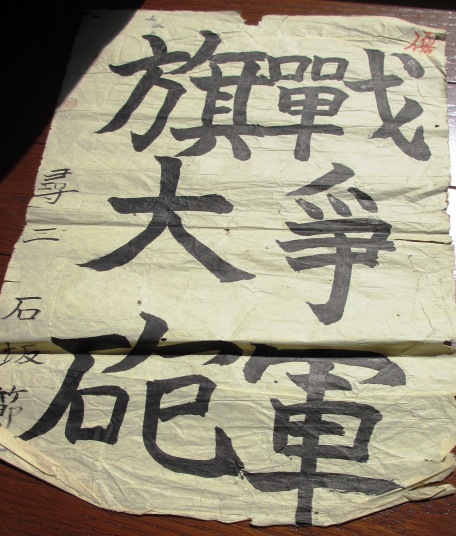 戰爭軍
旗大砲
尋二 石坂節